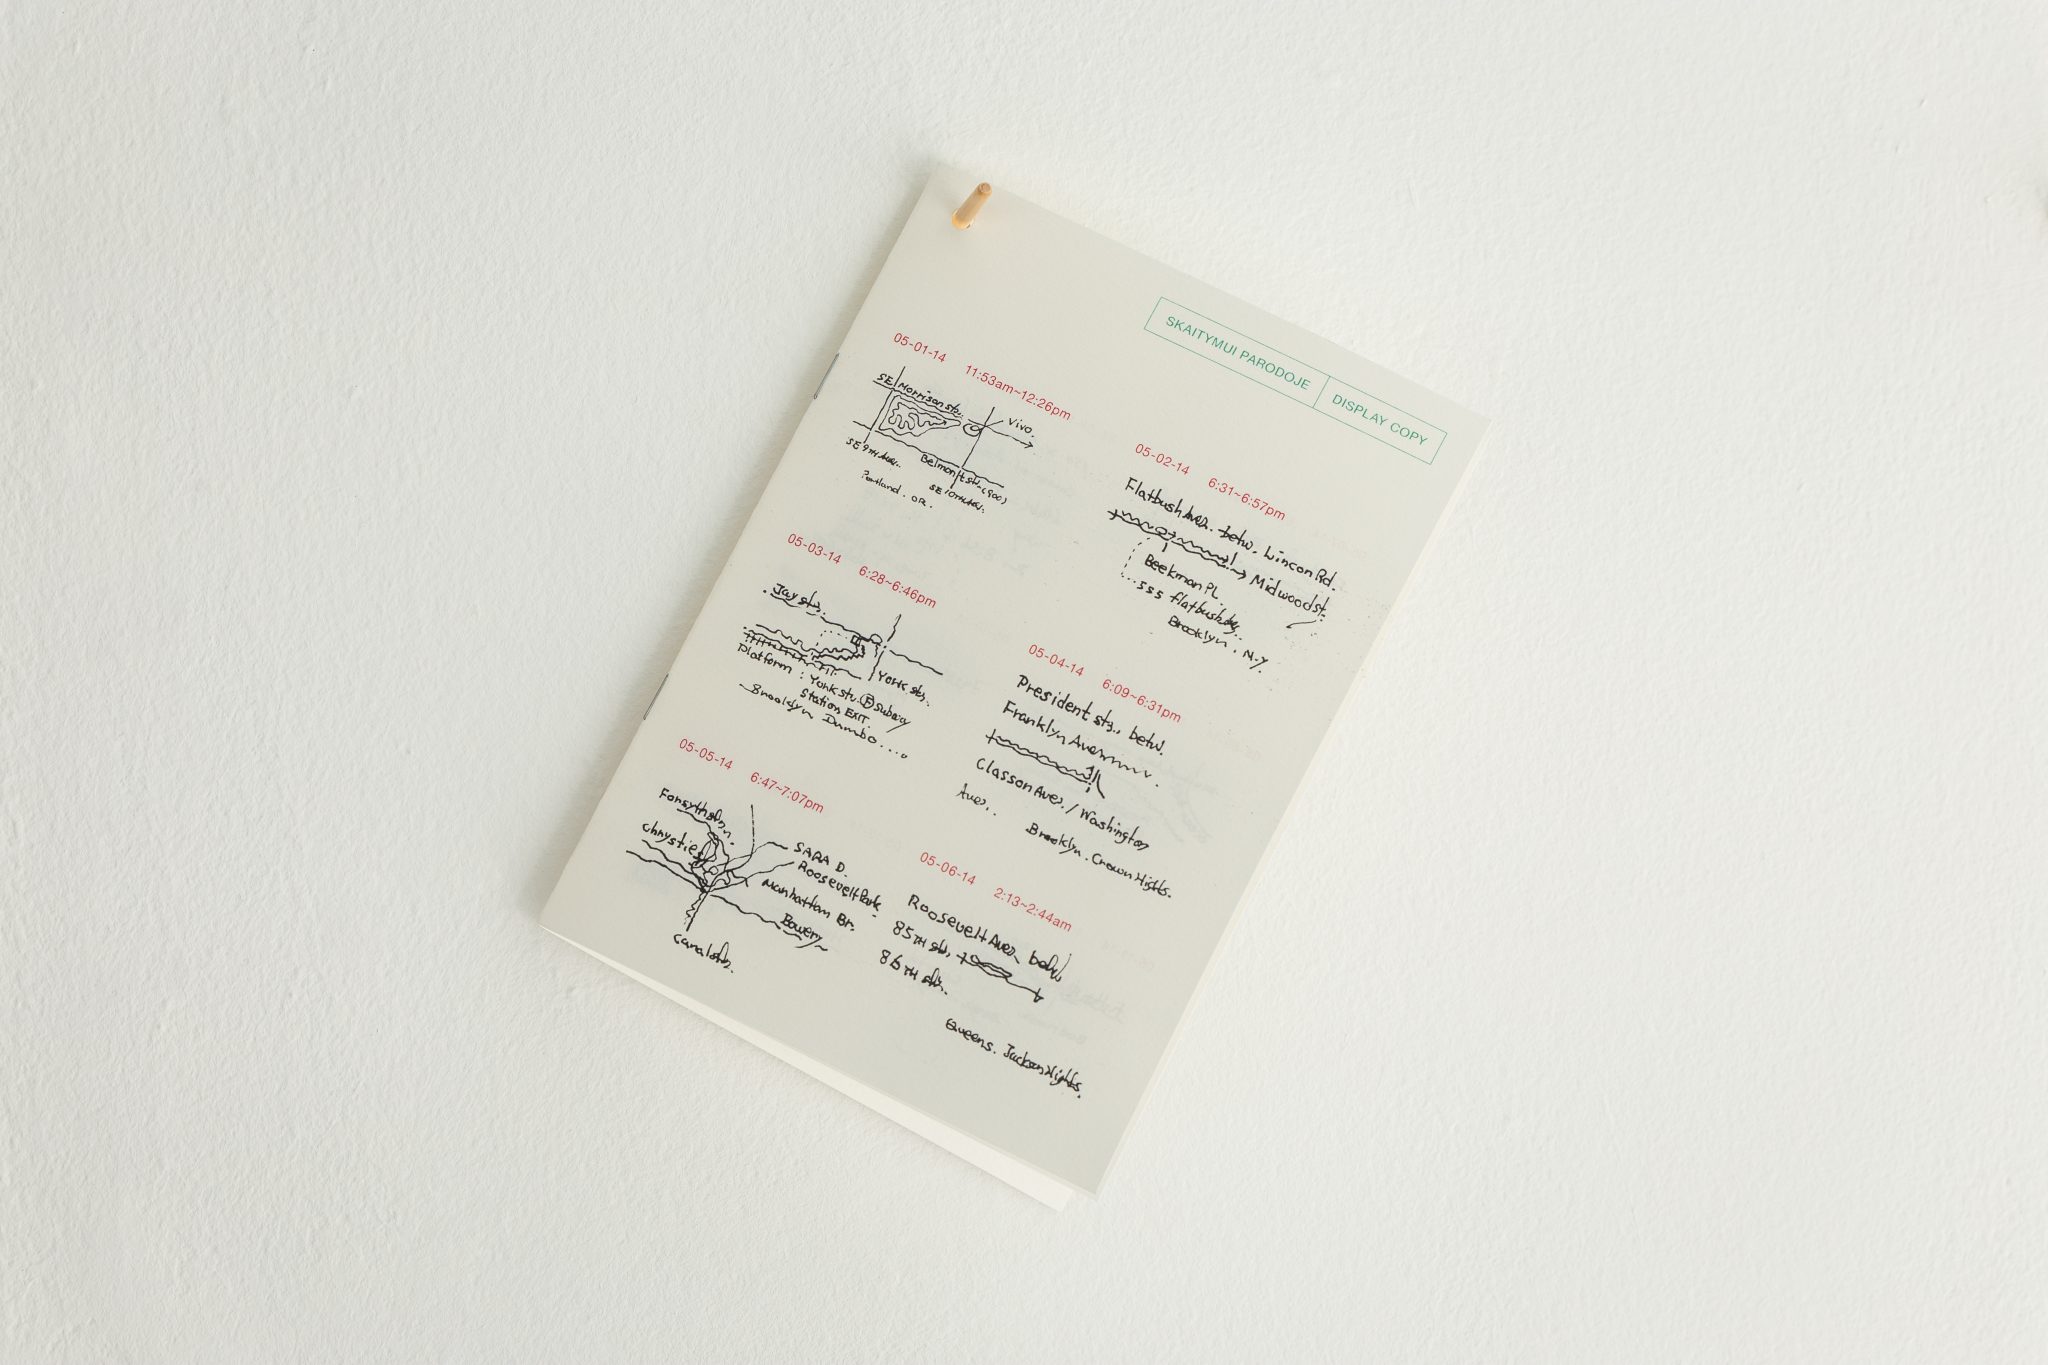 SKAITYMUI PARODOJE
DISPLAY COPY
05-01-14 11:53am~12:26pm
SE Morrison str.
Vivo.
SE 9TH Ave.
Belmont str. (900)
SE 10TH Ave.
Portland. OR.
05-02-14 6:31~6:57pm
Flatbush Ave. betw. Lincon Rd.
Midwood st.
Beekman PL
555 flatbush
Brooklyn. N.Y.
05-03-14 6:28~6:46pm
Jay str.
York str.
Platform : York str. F Subway
Station EXIT
Brooklyn Dumbo....
05-04-14 6:09~6:31pm
President str., betw.
Franklyn Ave
Classon Ave. / Washington
Ave..
Brooklyn. Crown Hights.
05-05-14 6:47~7:07pm
Forsyth str.
Chrystie
SARA D.
Roosevelt Park.
Manhattan Br.
Bowery
Canal str.
05-06-14 2:13~2:44am
Roosevelt Ave. betw
85TH str.
86TH str.
Queens. Jackson Hights.